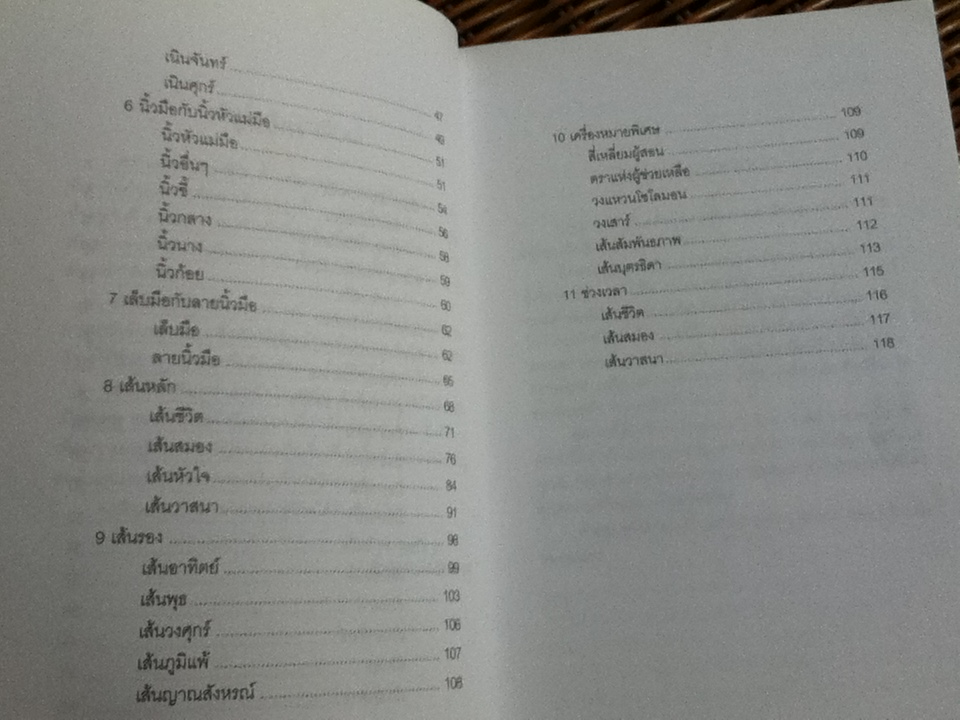 เนินจันทร์ 47
เนินศุกร์ 49
6 นิ้วมือกับนิ้วหัวแม่มือ 51
นิ้วหัวแม่มือ 51
นิ้วอื่นๆ 54
นิ้วชี้ 56
นิ้วกลาง 58
นิ้วนาง 59
นิ้วก้อย 60
7 เล็บมือกับลายนิ้วมือ 62
เล็บมือ 62
ลายนิ้วมือ 65
8 เส้นหลัก 68
เส้นชีวิต 71
เส้นสมอง 76
เส้นหัวใจ 84
เส้นวาสนา 91
9 เส้นรอง 98
เส้นอาทิตย์ 99
เส้นพุธ 103
เส้นวงศุกร์ 106
เส้นภูมิแพ้ 107
เส้นญาณสังหรณ์ 108
10 เครื่องหมายพิเศษ 109
สี่เหลี่ยมผู้สอน 109
ตราแห่งผู้ช่วยเหลือ 110
วงแหวนโซโลมอน 111
วงเสาร์ 111
เส้นสัมพันธภาพ 112
เส้นบุตรธิดา 113
11 ช่วงเวลา 115
เส้นชีวิต 116
เส้นสมอง 117
เส้นวาสนา 118